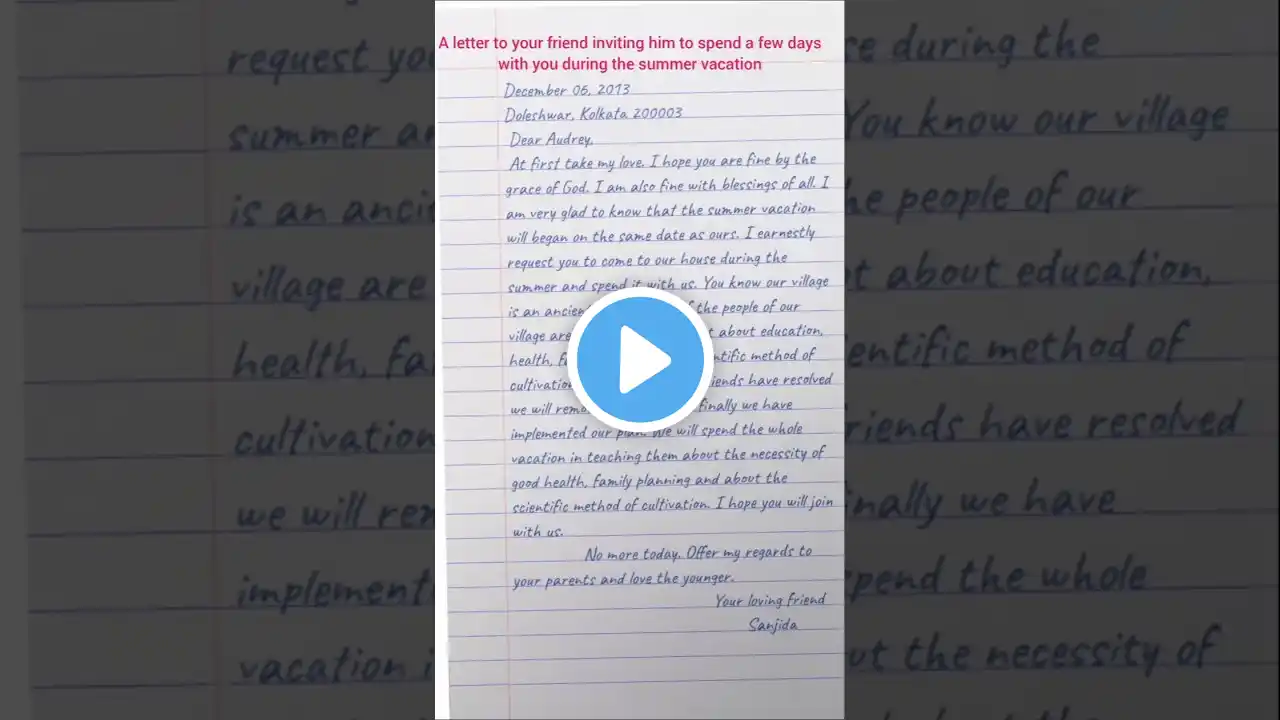 A letter to your friend inviting him to spend a few days
with you during the summer vacation
December 06, 2013
Doleshwar, Kolkata 200003
Dear Audrey,
At first take my love. I hope you are fine by the
grace of God. I am also fine with blessings of all. I
am very glad to know that the summer vacation
will began on the same date as ours. I earnestly
request you to come to our house during the
summer and spend it with us. You know our village
is an the people of our
village are about education,
health, method of
cultivation have resolved
we will finally we have
implemented our plan. We will spend the whole
vacation in teaching them about the necessity of
good health, family planning and about the
scientific method of cultivation. I hope you will join
with us.
No more today. Offer my regards to
your parents and love the younger.
Your loving friend
Sanjida